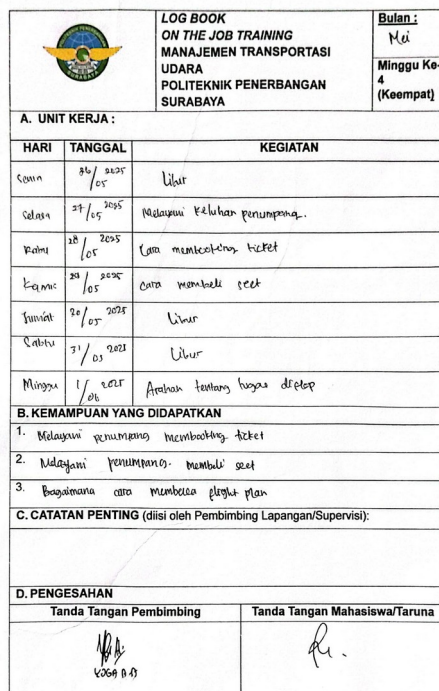 LOG BOOK
ON THE JOB TRAINING
MANAJEMEN TRANSPORTASI
UDARA
POLITEKNIK PENERBANGAN
SURABAYA
Bulan :
Mei
Minggu Ke-
4
(Keempat)
A. UNIT KERJA :
HARI TANGGAL KEGIATAN
Senin 26/05 2025 Libur
Selasa 27/05 2025 Melayani keluhan penumpang.
Rabu 28/05 2025 Cara membooking ticket
Kamis 29/05 2025 cara membeli seet
Jumat 30/05 2025 Libur
Sabtu 31/05 2025 Libur
Minggu 1/06 2025 Arahan tentang tugas
B. KEMAMPUAN YANG DIDAPATKAN
1. Melayani penumpang membooking ticket
2. Melayani penumpang. membeli seet
3. Bagaimana cara membaca flight plan
C. CATATAN PENTING (diisi oleh Pembimbing Lapangan/Supervisi):
D. PENGESAHAN
Tanda Tangan Pembimbing Tanda Tangan Mahasiswa/Taruna